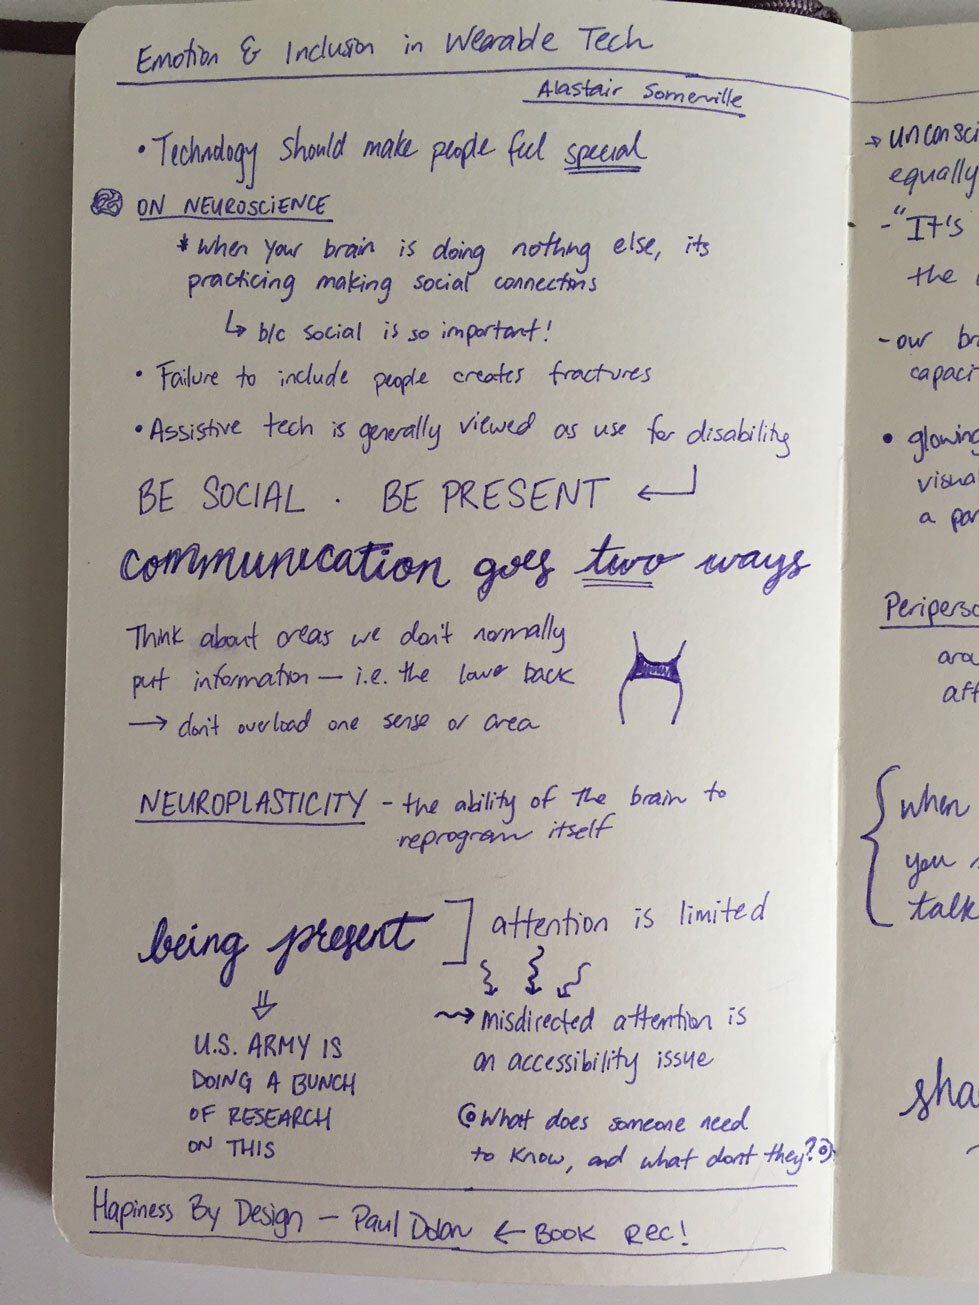 Emotion & Inclusion in Wearable Tech
Alastair Somerville
• Technology should make people feel special
ON NEUROSCIENCE
* when your brain is doing nothing else, its
practicing making social connections
↳ b/c social is so important!
• Failure to include people creates fractures
• Assistive tech is generally viewed as use for disability
BE SOCIAL . BE PRESENT ←
communication goes two ways
Think about areas we don't normally
put information — i.e. the lower back
→ don't overload one sense or area
NEUROPLASTICITY - the ability of the brain to
reprogram itself
being present ] attention is limited
⇓
U.S. ARMY IS
DOING A BUNCH
OF RESEARCH
ON THIS
⇝ misdirected attention is
an accessibility issue
What does someone need
to know, and what dont they?
Hapiness By Design — Paul Dolan ← BOOK REC!
→ unconsci
equally
- "It's
the
- our br
capaci
• glowing
visua
a par
Peripers
aro
aff
{ when
you
talk
sha